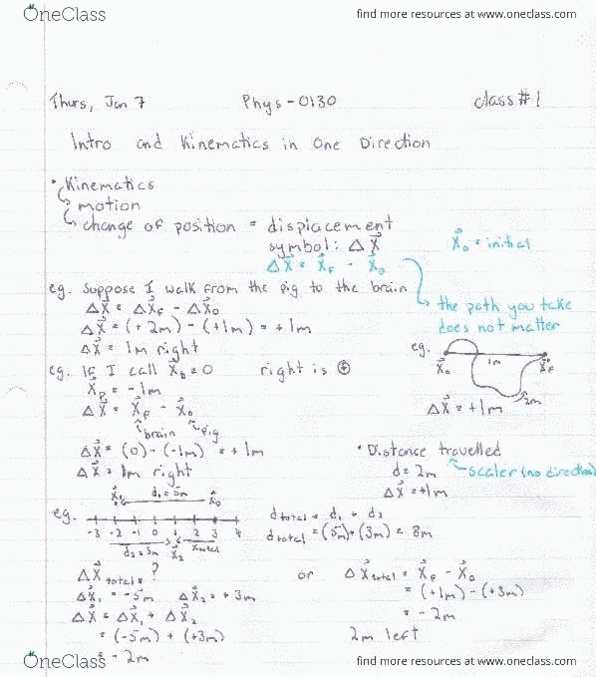 OneClass
find more resources at www.oneclass.com
Thurs, Jan 7 Phys-0130 class #1
Intro and Kinematics in One Direction
• Kinematics
↳ motion
↳ change of position = displacement
symbol: ΔX⃗
X⃗₀ = initial
ΔX⃗ = X⃗F - X⃗₀
eg. Suppose I walk from the pig to the brain
ΔX⃗ = ΔX⃗F - ΔX⃗₀
↳ the path you take
does not matter
ΔX⃗ = (+2m) - (+1m) = +1m
ΔX⃗ = 1m right
eg.
X⃗₀ 1m X⃗F
2m
ΔX⃗ = +1m
eg. If I call X⃗b = 0 right is ⊕
X⃗p = -1m
ΔX⃗ = X⃗F - X⃗₀
brain pig
ΔX⃗ = (0) - (-1m) = +1m
ΔX⃗ = 1m right
• Distance travelled
d = 2m scaler (no direction)
ΔX⃗ = +1m
X⃗₁ d₁ = 5m X⃗₀
eg. -3 -2 -1 0 1 2 3 4
d₂ = 3m X⃗₂ Xtotal
dtotal = d₁ + d₂
dtotal = (5m) + (3m) = 8m
ΔX⃗total = ?
ΔX⃗₁ = -5m ΔX⃗₂ = +3m
ΔX⃗ = ΔX⃗₁ + ΔX⃗₂
= (-5m) + (+3m)
= -2m
or ΔX⃗total = X⃗F - X⃗₀
= (+1m) - (+3m)
= -2m
2m left
OneClass
find more resources at www.oneclass.com